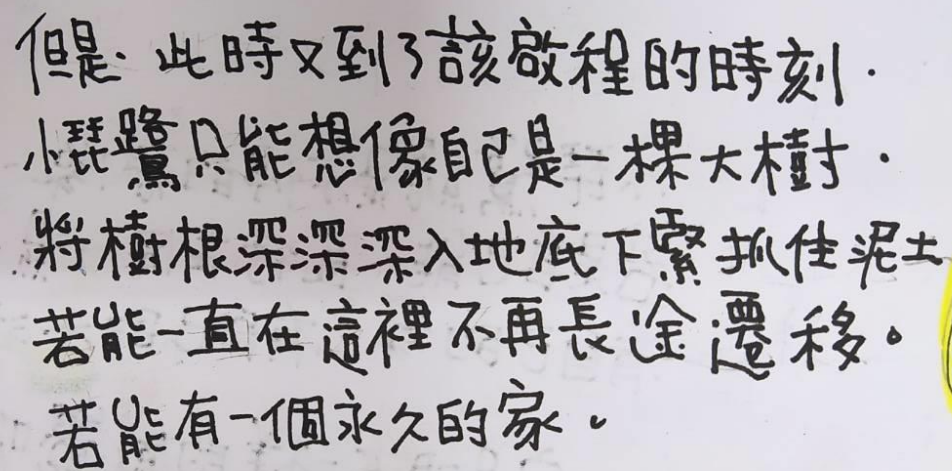 但是．此時又到了該啟程的時刻．
小琵鷺只能想像自己是一棵大樹．
將樹根深深深入地底下緊抓住泥土
若能一直在這裡不再長途遷移。
若能有一個永久的家。